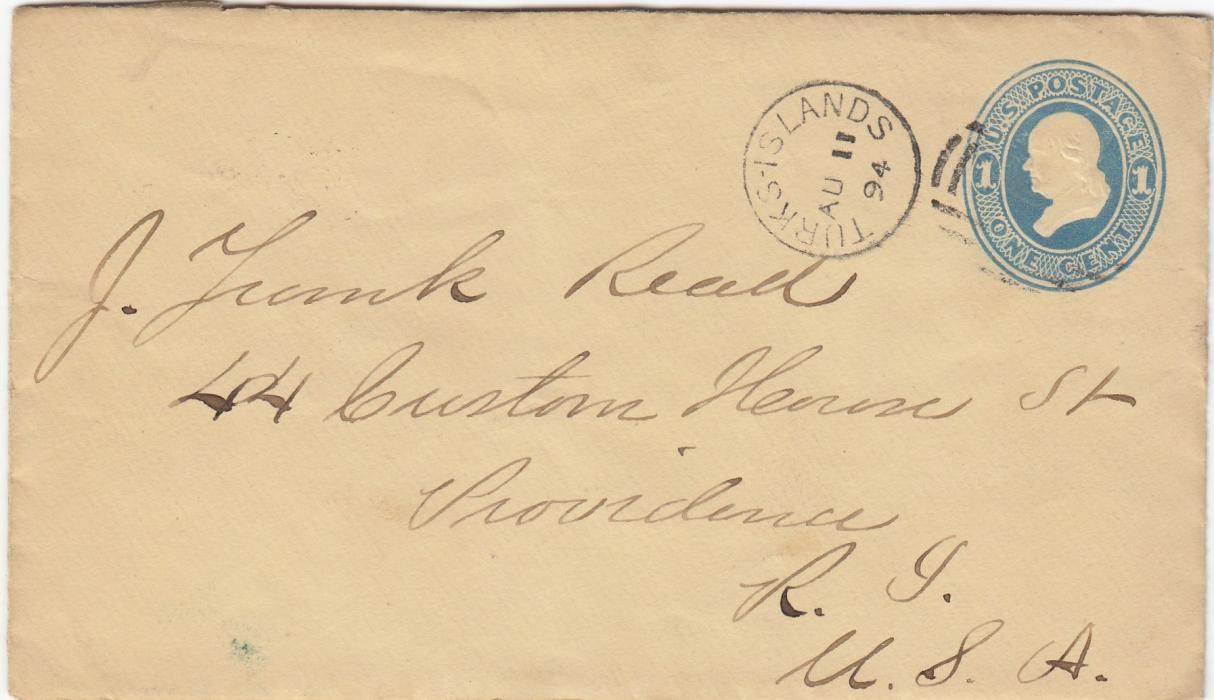 TURKS-ISLANDS
AU 11
94
U.S. POSTAGE
1 1
ONE CENT
J. Frank Read
44 Custom House St
Providence
R. I.
U. S. A.